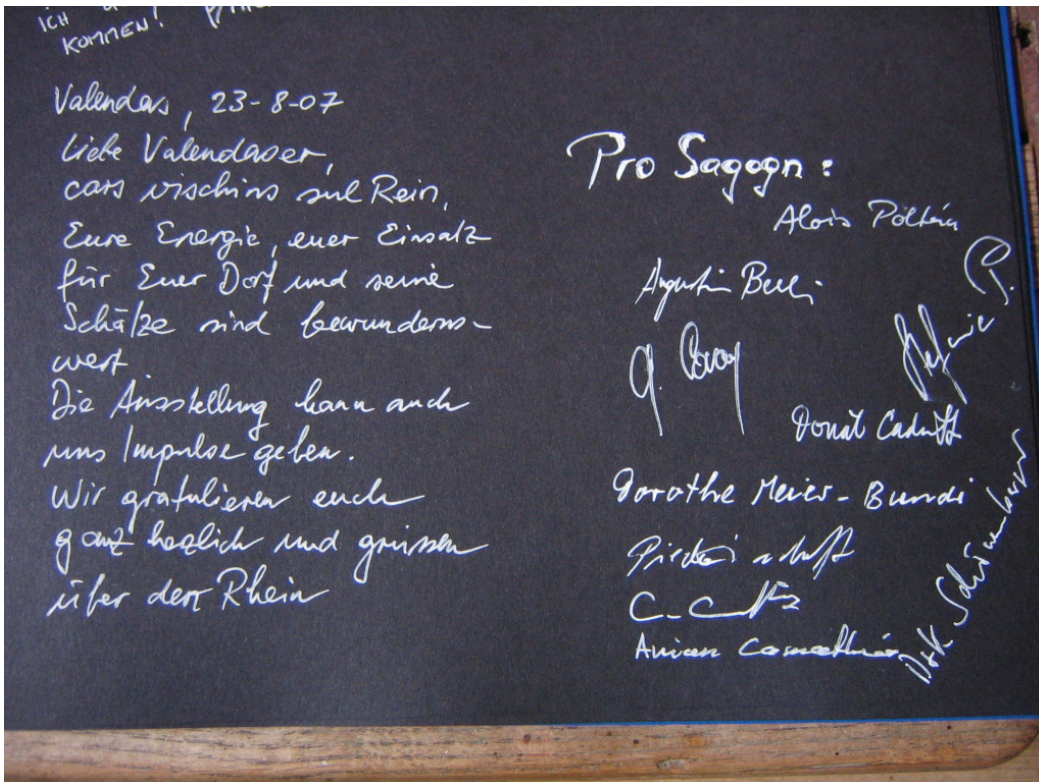 ICH
KOMMEN!
Valendas, 23-8-07
Liebe Valendaser,
cars vischins sul Rein,
Eure Energie, euer Einsatz
für Euer Dorf und seine
Schätze sind bewunderns-
wert.
Die Ausstellung kann auch
uns Impulse geben.
Wir gratulieren euch
ganz herzlich und grüssen
über den Rhein
Pro Sagogn:
Alois
Augustin
Stefanie P.
Donat Cadruvi
Dorothe Meier-Bundi
Dirk Schönenberger